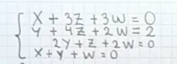 X + 3z + 3w = 0
y + 4z + 2w = 2
2y + z + 2w = 0
x + y + w = 0